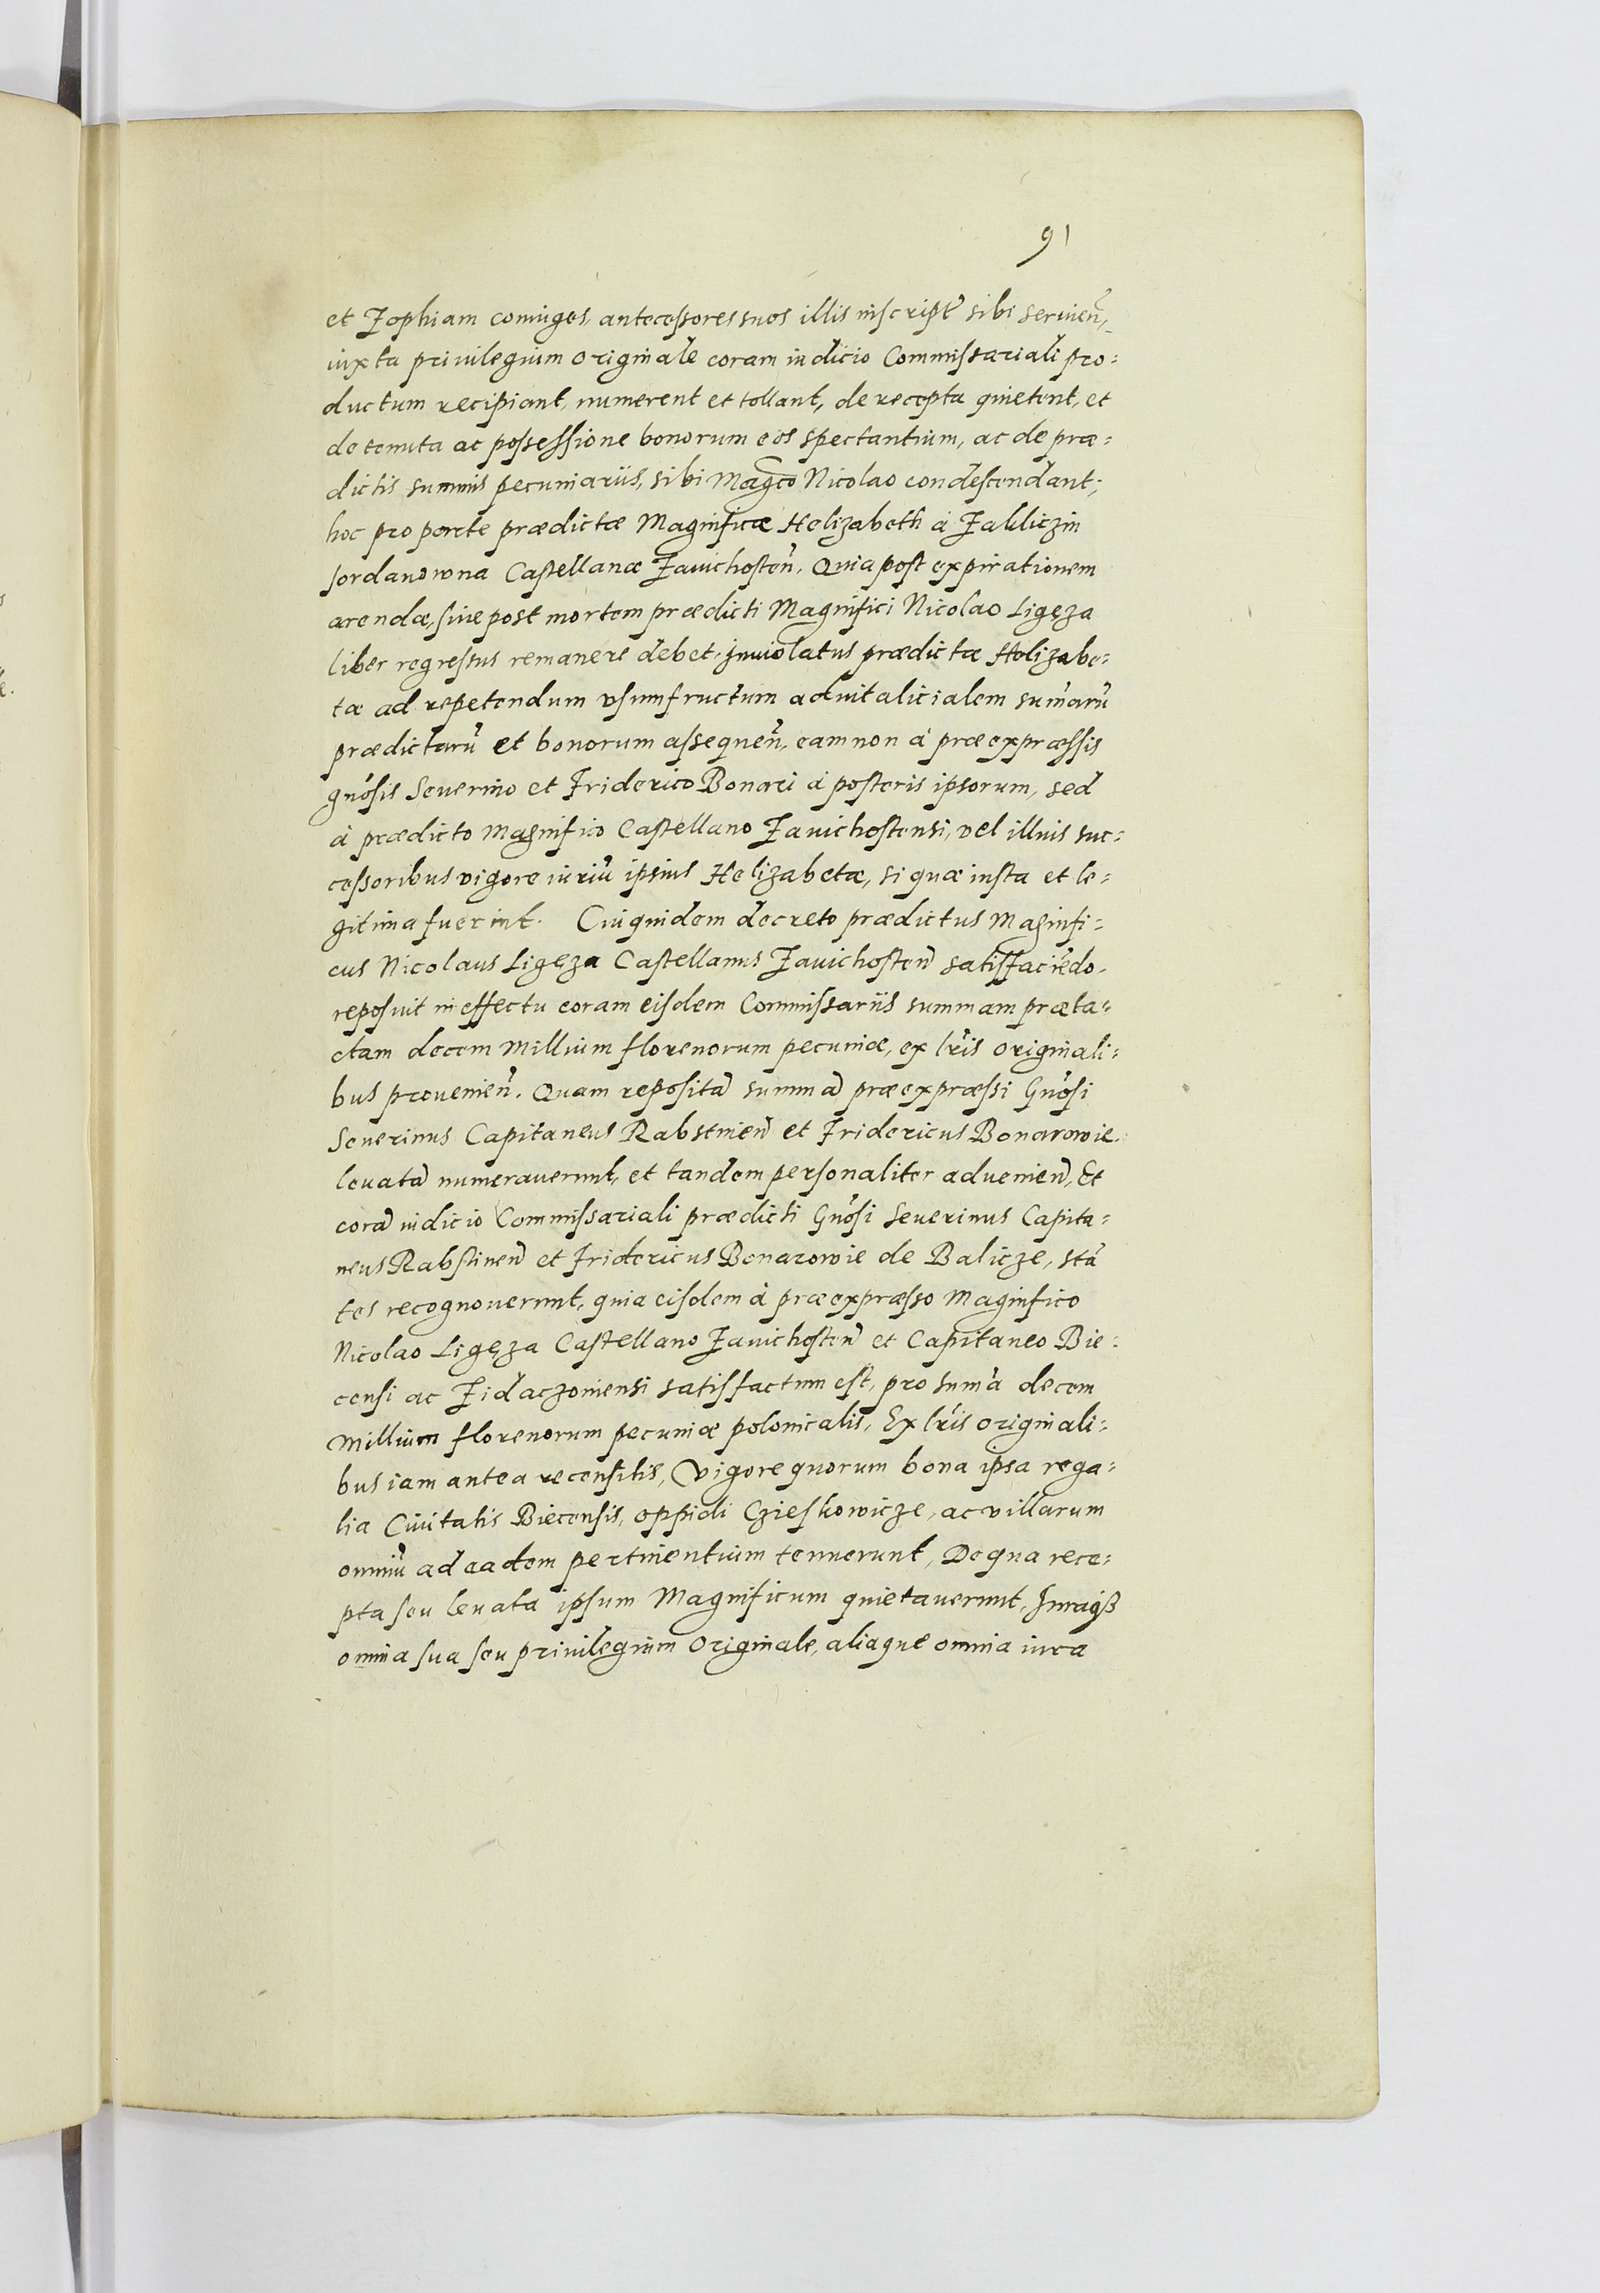 91
et Zophiam coniuges, antecessores suos illis inscript̃ sibi seruieñ,
iuxta priuilegium originale coram iudicio Commissariali pro=
ductum recipiant, numerent et tollant, de recepta quietent, et
de tenuta ac possessione bonorum eos spectantium, ac de præ=
dictis summis pecuniariis, sibi Magco Nicolao condescendant;
hoc pro parte prædictæ Magnificæ Helizabeth à Zakliczin
Jordanowna Castellanæ Zauichosteñ. Quia post expirationem
arendæ, siue post mortem prædicti Magnifici Nicolao Ligęza
liber regressus remanere debet inuiolatus prædictæ Helizabe=
tæ ad repetendum vsumfructum aduitalicialem sum̃arũ
prædictarũ et bonorum assequeñ. eam non à præexpræssis
gñosis Seuerino et Friderico Bonari à posteris ipsorum, sed
à prædicto Magnifico Castellano Zauichostensi, vel illius suc=
cessoribus vigore iuriũ ipsius Helizabetæ, si quæ iusta et le=
gitima fuerint. Cuiquidem decreto prædictus Magnifi=
cus Nicolaus Ligęza Castellanus Zauichosteñ satisfaciẽdo
reposuit in effectu coram eisdem Commissariis summam præta=
ctam decem Millium florenorum pecuniæ, ex lr̃is originali=
bus prouenieñ. Quam repositã summã præexpræssi Gñosi
Seuerinus Capitaneus Rabstineñ et Fridericus Bonarowie
leuatã numerauerunt, et tandem personaliter aduenieñ, Et
corã iudicio Commissariali prædicti Gñosi Seuerinus Capita=
neus Rabstineñ et Fridericus Bonarowie de Balicze, stã
tes recognouerunt, quia eisdem à præexpræsso Magnifico
Nicolao Ligęza Castellano Zauichosteñ et Capitaneo Bie=
censi ac Zidaczouiensi satisfactum est, pro sum̃a decem
Millium florenorum pecuniæ polonicalis, Ex lr̃is originali=
bus iam antea recensitis, Vigore quorum bona ipsa rega=
lia Ciuitatis Biecensis, oppidi Czieskowicze, ac villarum
omniũ ad eadem pertinentium tenuerunt, De qua rece=
pta seu leuata ipsum Magnificum quietauerunt,
omnia sua seu priuilegium originale, aliaque omnia iura